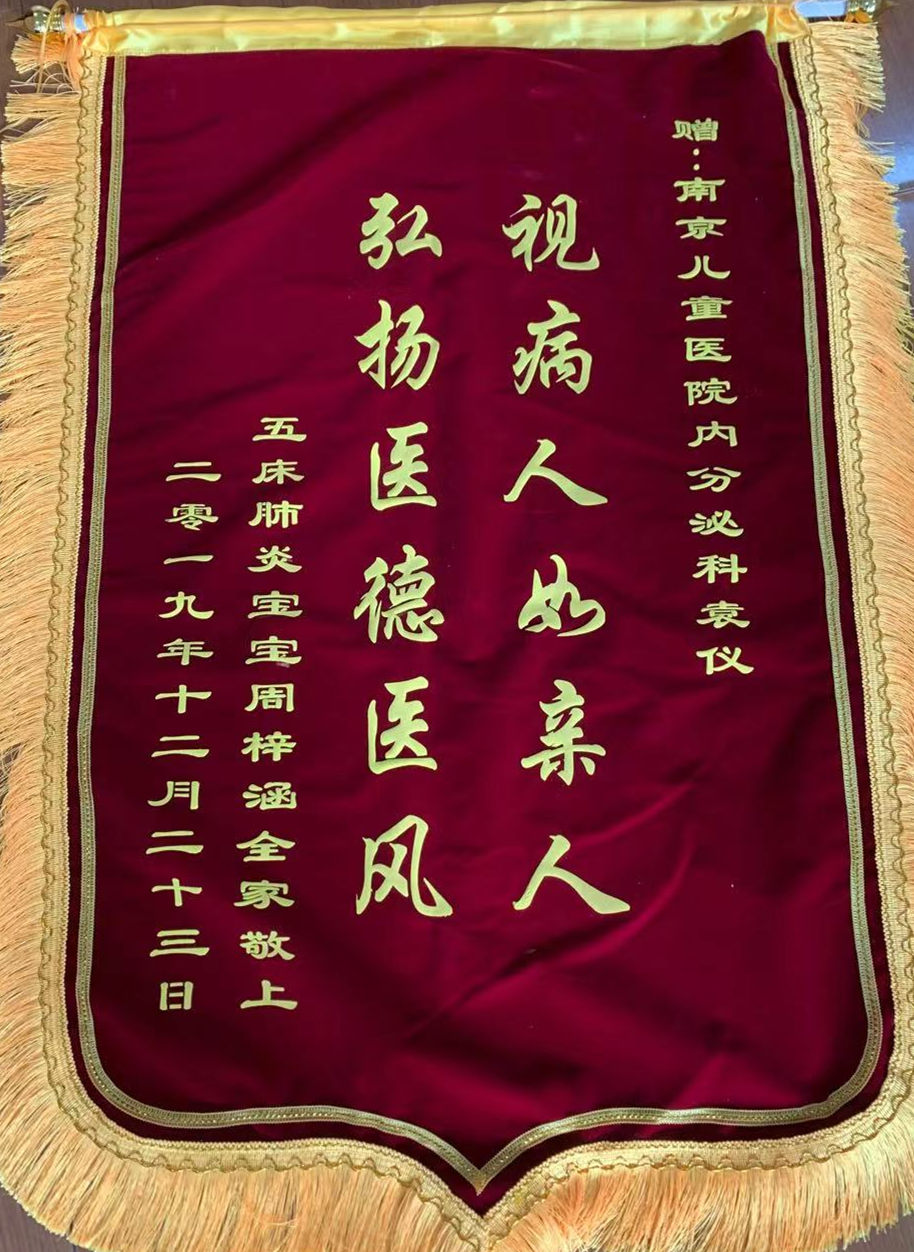 赠：南京儿童医院内分泌科袁仪
视病人如亲人
弘扬医德医风
五床肺炎宝宝周梓涵全家敬上
二零一九年十二月二十三日